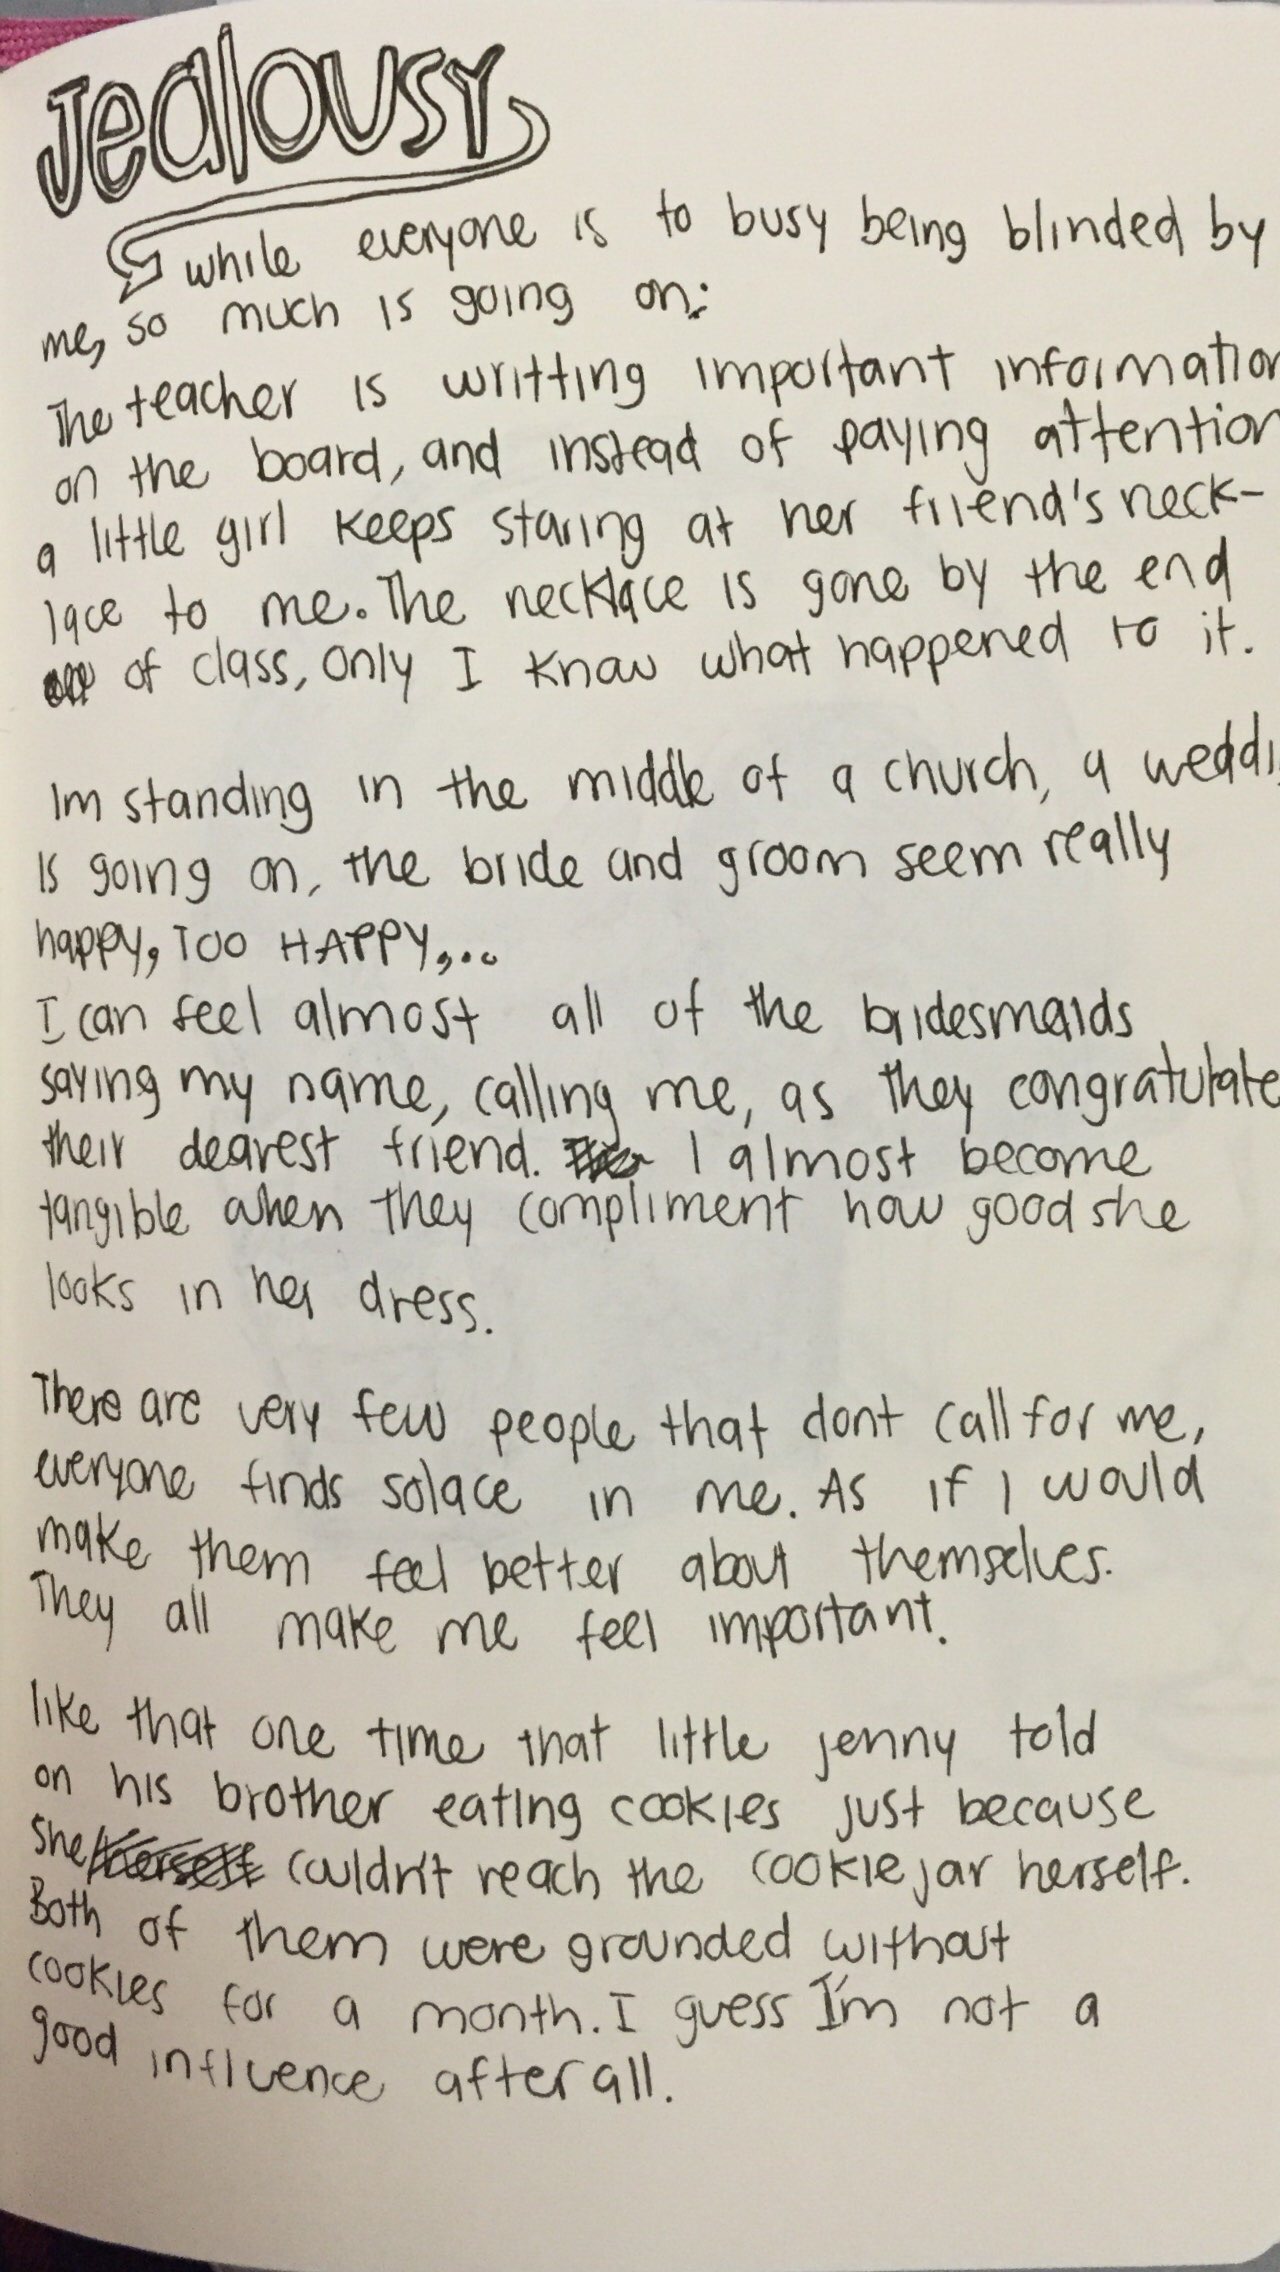 Jealousy
while everyone is to busy being blinded by
me, so much is going on:
The teacher is writting important information
on the board, and instead of paying attention
a little girl keeps staring at her friend's neck-
lace to me. The necklace is gone by the end
of class, only I know what happened to it.
Im standing in the middle of a church, a weddi
is going on, the bride and groom seem really
happy, TOO HAPPY,...
I can feel almost all of the bridesmaids
saying my name, calling me, as they congratulate
their dearest friend. I almost become
tangible when they compliment how good she
looks in her dress.
There are very few people that dont call for me,
everyone finds solace in me. As if I would
make them feel better about themselves.
They all make me feel important.
like that one time that little jenny told
on his brother eating cookies just because
she herself couldn't reach the cookie jar herself.
Both of them were grounded without
cookies for a month. I guess I'm not a
good influence after all.